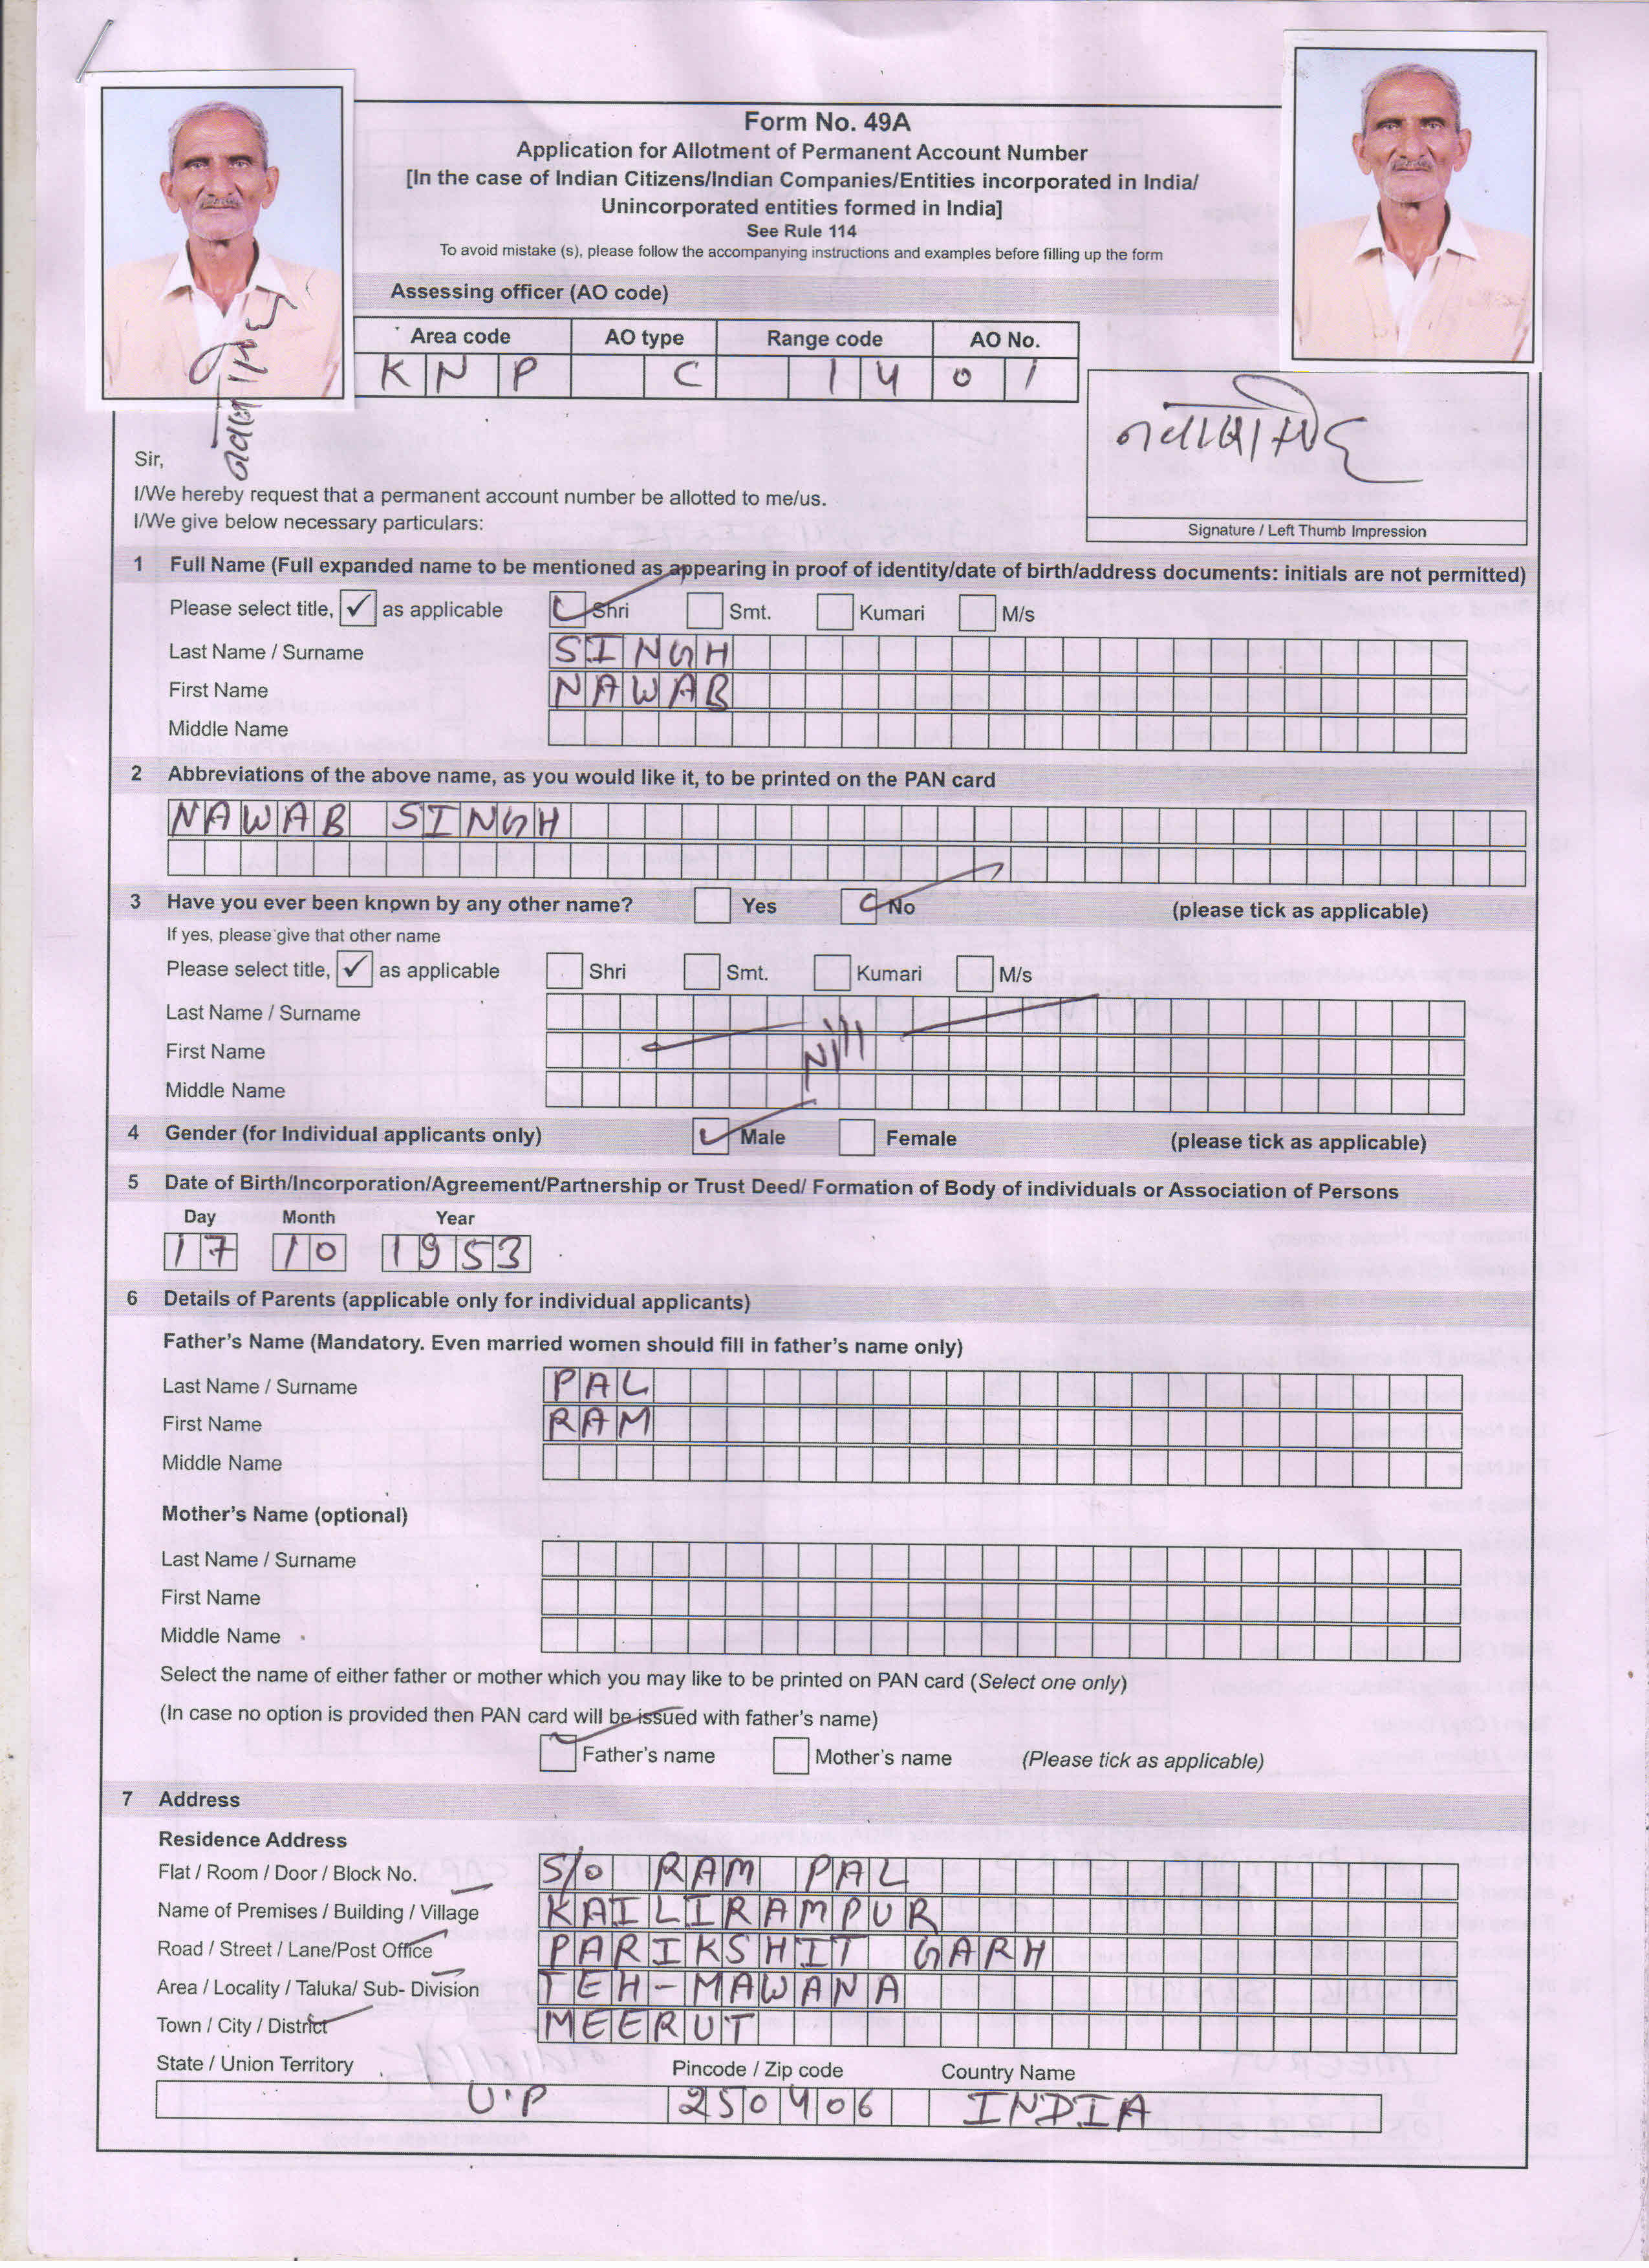 Form No. 49A
Application for Allotment of Permanent Account Number
[In the case of Indian Citizens/Indian Companies/Entities incorporated in India/
Unincorporated entities formed in India]
See Rule 114
To avoid mistake (s), please follow the accompanying instructions and examples before filling up the form
Assessing officer (AO code)
Area code AO type Range code AO No.
KNP C 14 01
Sir,
I/We hereby request that a permanent account number be allotted to me/us.
I/We give below necessary particulars:
Signature / Left Thumb Impression
1 Full Name (Full expanded name to be mentioned as appearing in proof of identity/date of birth/address documents: initials are not permitted)
Please select title, ✓ as applicable ✓ Shri Smt. Kumari M/s
Last Name / Surname SINGH
First Name NAWAB
Middle Name
2 Abbreviations of the above name, as you would like it, to be printed on the PAN card
NAWAB SINGH
3 Have you ever been known by any other name? Yes ✓ No (please tick as applicable)
If yes, please give that other name
Please select title, ✓ as applicable Shri Smt. Kumari M/s
Last Name / Surname
First Name Nill
Middle Name
4 Gender (for Individual applicants only) ✓ Male Female (please tick as applicable)
5 Date of Birth/Incorporation/Agreement/Partnership or Trust Deed/ Formation of Body of individuals or Association of Persons
Day Month Year
17 10 1953
6 Details of Parents (applicable only for individual applicants)
Father's Name (Mandatory. Even married women should fill in father's name only)
Last Name / Surname PAL
First Name RAM
Middle Name
Mother's Name (optional)
Last Name / Surname
First Name
Middle Name
Select the name of either father or mother which you may like to be printed on PAN card (Select one only)
(In case no option is provided then PAN card will be issued with father's name)
✓ Father's name Mother's name (Please tick as applicable)
7 Address
Residence Address
Flat / Room / Door / Block No. S/O RAM PAL
Name of Premises / Building / Village KAILIRAMPUR
Road / Street / Lane/Post Office PARIKSHIT GARH
Area / Locality / Taluka/ Sub- Division TEH-MAWANA
Town / City / District MEERUT
State / Union Territory Pincode / Zip code Country Name
U.P 250406 INDIA